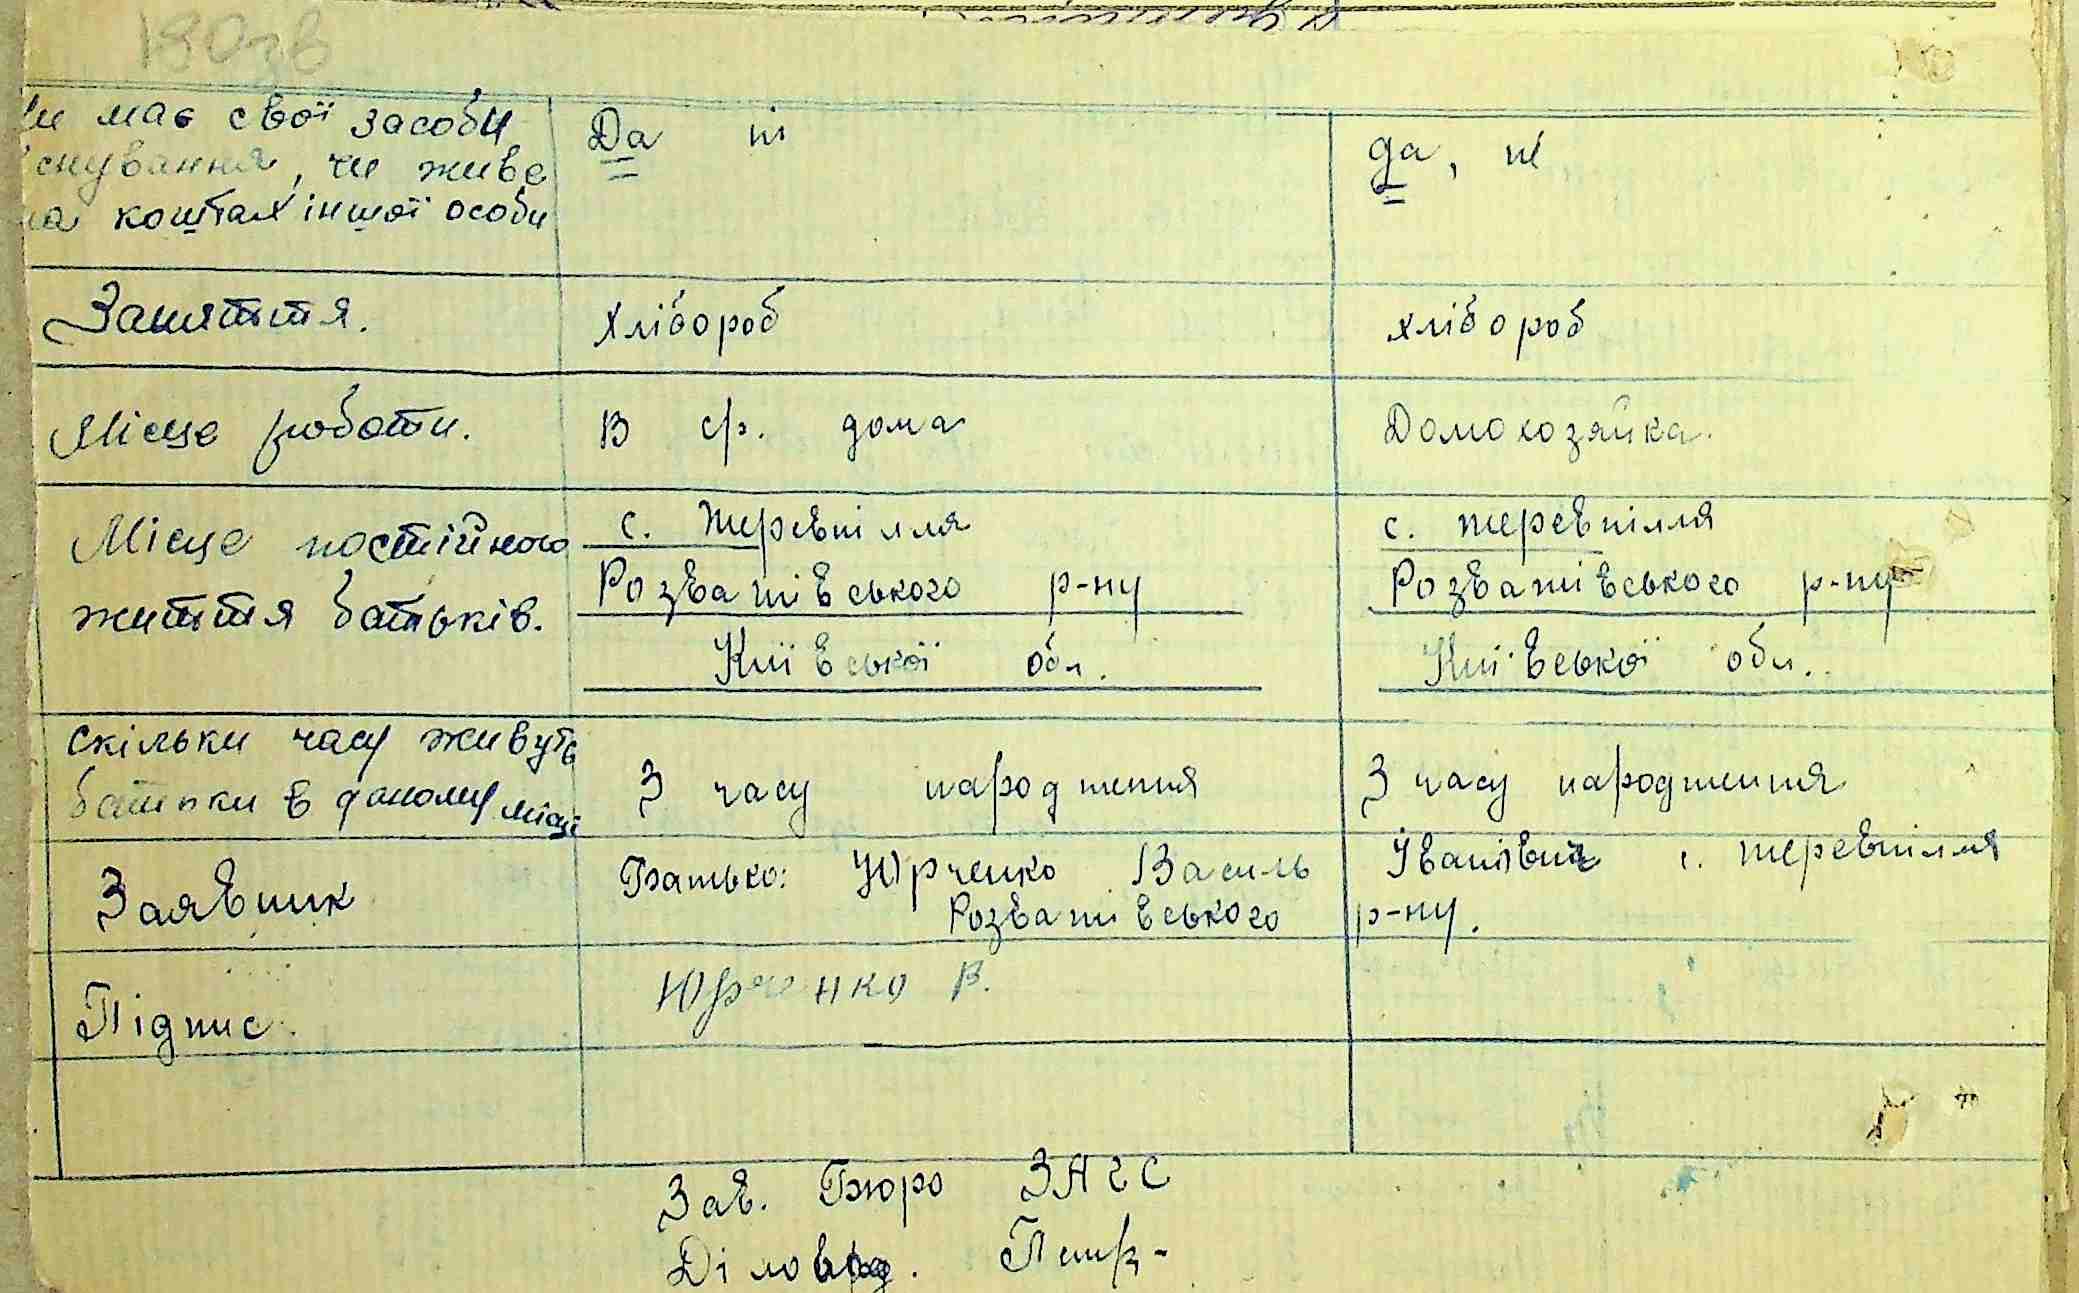 180зв
Чи має свої засоби
існування, чи живе
на коштах іншої особи
Да ні
да, ні
Заняття.
хлібороб
хлібороб
Місце роботи.
В с/г. дома
Домохозяйка.
Місце постійного
життя батьків.
с. Жеревпілля
Розважівського р-ну
Київської обл.
с. жеревпілля
Розважівського р-ну
Київської обл.
скільки часу живуть
батьки в даному місці
З часу народження
З часу народження
Заявник
Батько: Юрченко Василь Іванівич с. жеревпілля
Розважівського р-ну.
Підпис.
Юрченко В.
Зав. Бюро ЗАГС
Діловод.